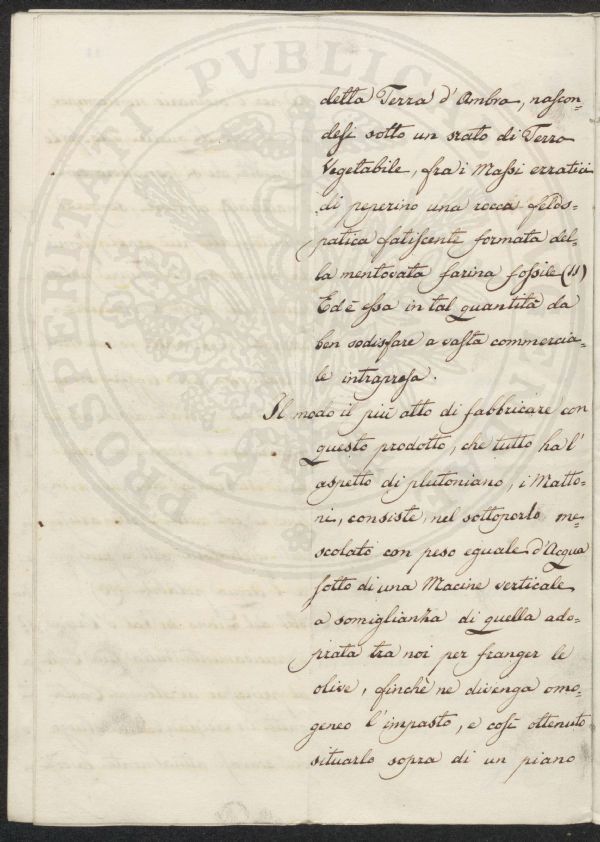 della Terra d'Ambra, nascon-
desi sotto un strato di Terra
Vegetabile, fra i Massi erratici
di peperino una rocca felds-
patica fatiscente formata del-
la mentovata farina fossile (11)
Ed è essa in tal quantità da
ben sodisfare a vasta commercia-
le intrapresa.
Il modo il più atto di fabbricare con
questo prodotto, che tutto ha l'
aspetto di plutoniano, i Matto-
ni, consiste, nel sottoporlo me-
scolato con peso eguale d'Acqua
sotto di una Macine verticale
a somiglianza di quella ado-
prata tra noi per franger le
olive, finchè ne divenga omo-
geneo l'impasto, e così ottenuto
situarlo sopra di un piano
PROSPERITATI PVBLICAE